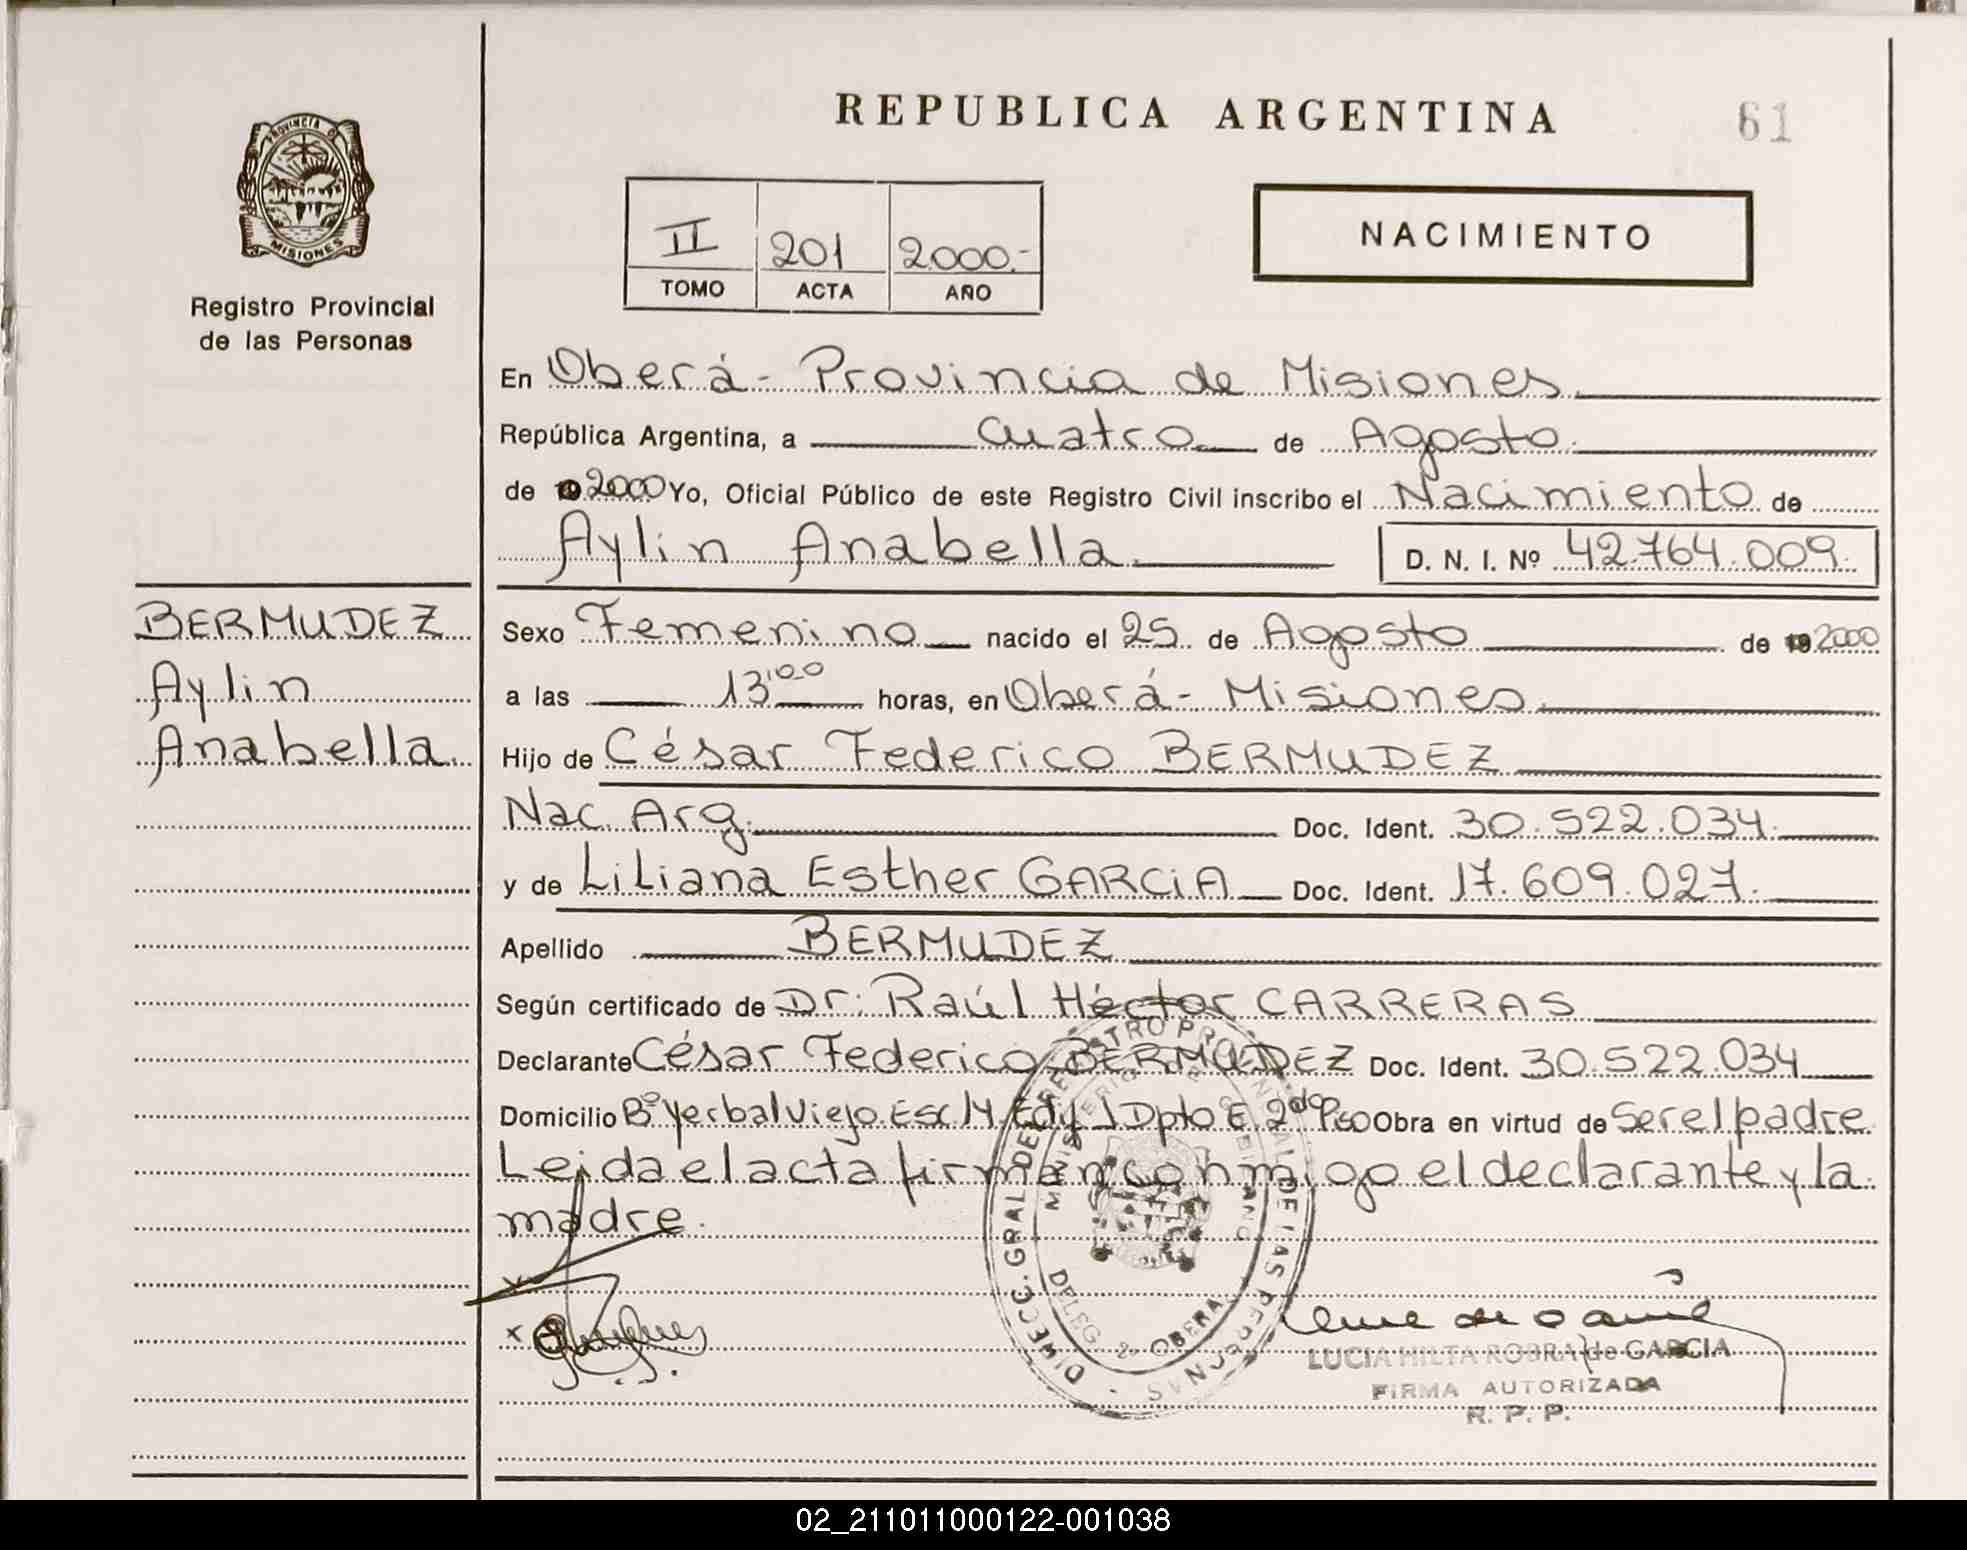 REPUBLICA ARGENTINA
61
PROVINCIA D
MISIONES
Registro Provincial
de las Personas
II 201 2000.-
TOMO ACTA AÑO
NACIMIENTO
En Oberá - Provincia de Misiones.
República Argentina, a cuatro de Agosto.
de 2000 Yo, Oficial Público de este Registro Civil inscribo el Nacimiento de
Aylin Anabella. D. N. I. Nº 42.764.009.
BERMUDEZ
Aylin
Anabella.
Sexo Femenino nacido el 25 de Agosto de 2000
a las 13'00 horas, en Oberá - Misiones.
Hijo de César Federico BERMUDEZ
Nac. Arg. Doc. Ident. 30.522.034.
y de Liliana Esther GARCiA Doc. Ident. 17.609.027.
Apellido BERMUDEZ
Según certificado de Dr: Raúl Héctor CARRERAS
Declarante César Federico BERMUDEZ Doc. Ident. 30.522.034
Domicilio Bº Yerbal Viejo. Esc 14 Edif 1 Dpto E. 2do Piso Obra en virtud de Ser el padre.
Leida el acta firman conmigo el declarante y la
madre.
DIRECC. GRAL DEL REGISTRO PROVINCIAL DE LAS PERSONAS
MINISTERIO DE GOBIERNO
DELEG. 2º OBERA
LUCIA HILTA ROBRA de GARCIA
FIRMA AUTORIZADA
R. P. P.
02_211011000122-001038